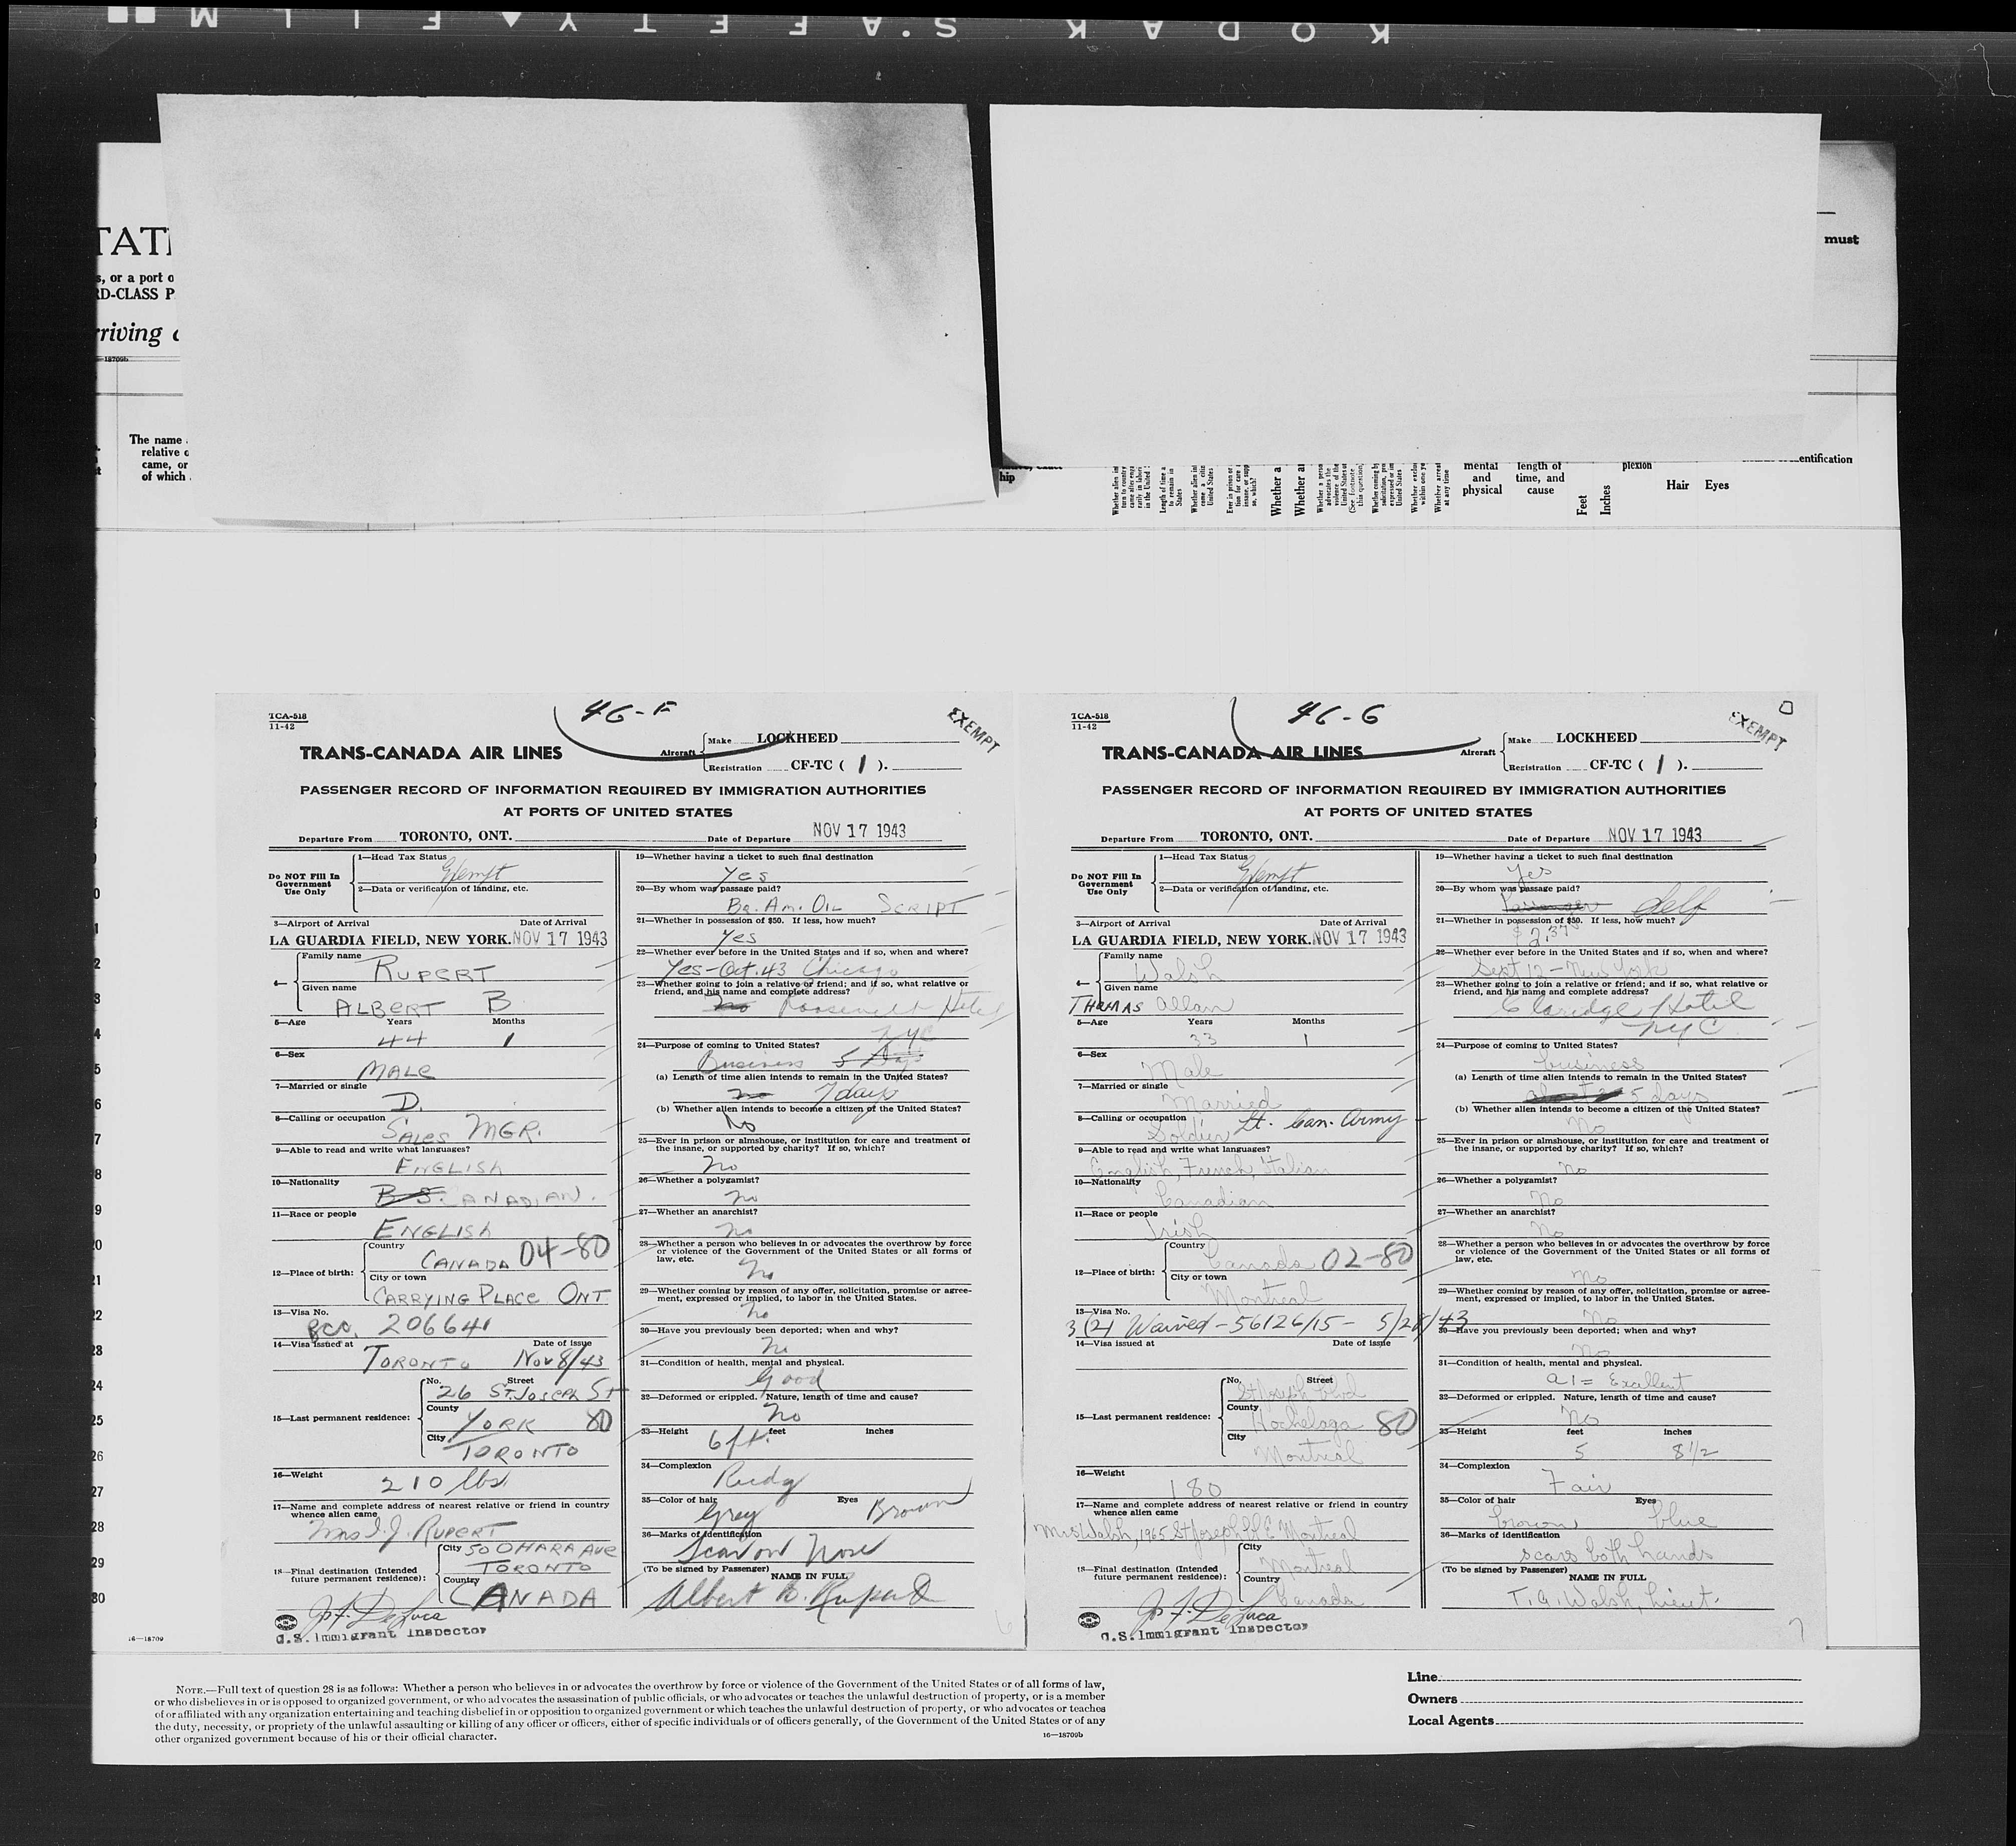 KODAK SAFETY FILM
TAT
s, or a port o
RD-CLASS P
rriving
16709b
must
The name
relative o
came, or
of which
hip
Whether a
mental
and
physical
length of
time, and
cause
Feet
Inches
plexion
Hair Eyes
entification
TCA-518
11-42
46-F
EXEMPT
TRANS-CANADA AIR LINES
Aircraft
Make LOCKHEED
Registration CF-TC ( 1 ).
PASSENGER RECORD OF INFORMATION REQUIRED BY IMMIGRATION AUTHORITIES
AT PORTS OF UNITED STATES
Departure From TORONTO, ONT. Date of Departure NOV 17 1943
Do NOT Fill In
Government
Use Only
1—Head Tax Status
Exempt
2—Data or verification of landing, etc.
3—Airport of Arrival Date of Arrival
LA GUARDIA FIELD, NEW YORK. NOV 17 1943
4—
Family name
RUPERT
Given name
ALBERT B
5—Age Years Months
44 1
6—Sex
MALE
7—Married or single
D.
8—Calling or occupation
SALES MGR.
9—Able to read and write what languages?
ENGLISH
10—Nationality
B.S. CANADIAN.
11—Race or people
ENGLISH
12—Place of birth:
Country
CANADA 04-80
City or town
CARRYING PLACE ONT
13—Visa No.
BCC. 206641
14—Visa issued at Date of issue
TORONTO Nov 8/43
15—Last permanent residence:
No. Street
26 ST. JOSEPH ST
County
YORK 80
City
TORONTO
16—Weight
210 lbs.
17—Name and complete address of nearest relative or friend in country
whence alien came
Mrs I. J. RUPERT
18—Final destination (Intended
future permanent residence):
City 50 OHARA AVE
TORONTO
Country
CANADA
Jos. F. DeLuca
U.S. Immigrant Inspector
19—Whether having a ticket to such final destination
Yes
20—By whom was passage paid?
BR. AM. OIL SCRIPT
21—Whether in possession of $50. If less, how much?
Yes
22—Whether ever before in the United States and if so, when and where?
Yes-Oct. 43 Chicago
23—Whether going to join a relative or friend; and if so, what relative or
friend, and his name and complete address?
No Roosevelt Hotel
NYC
24—Purpose of coming to United States?
Business 5 Days
(a) Length of time alien intends to remain in the United States?
7 days
(b) Whether alien intends to become a citizen of the United States?
No
25—Ever in prison or almshouse, or institution for care and treatment of
the insane, or supported by charity? If so, which?
No
26—Whether a polygamist?
No
27—Whether an anarchist?
No
28—Whether a person who believes in or advocates the overthrow by force
or violence of the Government of the United States or all forms of
law, etc.
No
29—Whether coming by reason of any offer, solicitation, promise or agree-
ment, expressed or implied, to labor in the United States.
No
30—Have you previously been deported; when and why?
No
31—Condition of health, mental and physical.
Good
32—Deformed or crippled. Nature, length of time and cause?
No
33—Height feet inches
6 ft.
34—Complexion
Rudy
35—Color of hair Eyes
Gray Brown
36—Marks of identification
Scar on Nose
(To be signed by Passenger) NAME IN FULL
Albert B. Rupert
6
TCA-518
11-42
46-G
EXEMPT
TRANS-CANADA AIR LINES
Aircraft
Make LOCKHEED
Registration CF-TC ( 1 ).
PASSENGER RECORD OF INFORMATION REQUIRED BY IMMIGRATION AUTHORITIES
AT PORTS OF UNITED STATES
Departure From TORONTO, ONT. Date of Departure NOV 17 1943
Do NOT Fill In
Government
Use Only
1—Head Tax Status
Exempt
2—Data or verification of landing, etc.
3—Airport of Arrival Date of Arrival
LA GUARDIA FIELD, NEW YORK. NOV 17 1943
4—
Family name
Walsh
Given name
THOMAS Allan
5—Age Years Months
33 1
6—Sex
Male
7—Married or single
Married
8—Calling or occupation
Soldier Lt. Can. Army
9—Able to read and write what languages?
English, French, Italian
10—Nationality
Canadian
11—Race or people
Irish
12—Place of birth:
Country
Canada 02-80
City or town
Montreal
13—Visa No.
3 (2) Waived - 56126/15 - 5/28/43
14—Visa issued at Date of issue
15—Last permanent residence:
No. Street
St Joseph Blvd
County
Hochelaga 80
City
Montreal
16—Weight
180
17—Name and complete address of nearest relative or friend in country
whence alien came
Mrs Walsh, 1965 St Joseph E Montreal
18—Final destination (Intended
future permanent residence):
City
Montreal
Country
Canada
Jos. F. DeLuca
U.S. Immigrant Inspector
19—Whether having a ticket to such final destination
Yes
20—By whom was passage paid?
Passenger Self
21—Whether in possession of $50. If less, how much?
22—Whether ever before in the United States and if so, when and where?
Sept 12 - New York
23—Whether going to join a relative or friend; and if so, what relative or
friend, and his name and complete address?
Claridge Hotel
NYC
24—Purpose of coming to United States?
business
(a) Length of time alien intends to remain in the United States?
5 days
(b) Whether alien intends to become a citizen of the United States?
No
25—Ever in prison or almshouse, or institution for care and treatment of
the insane, or supported by charity? If so, which?
no
26—Whether a polygamist?
No
27—Whether an anarchist?
No
28—Whether a person who believes in or advocates the overthrow by force
or violence of the Government of the United States or all forms of
law, etc.
No
29—Whether coming by reason of any offer, solicitation, promise or agree-
ment, expressed or implied, to labor in the United States.
No
30—Have you previously been deported; when and why?
No
31—Condition of health, mental and physical.
a1 = Excellent
32—Deformed or crippled. Nature, length of time and cause?
No
33—Height feet inches
5 8 1/2
34—Complexion
Fair
35—Color of hair Eyes
brown blue
36—Marks of identification
scars both hands
(To be signed by Passenger)
NAME IN FULL
T. A. Walsh, Lieut.
7
16—18709
NOTE.—Full text of question 28 is as follows: Whether a person who believes in or advocates the overthrow by force or violence of the Government of the United States or of all forms of law,
or who disbelieves in or is opposed to organized government, or who advocates the assassination of public officials, or who advocates or teaches the unlawful destruction of property, or is a member
of or affiliated with any organization entertaining and teaching disbelief in or opposition to organized government or which teaches the unlawful destruction of property, or who advocates or teaches
the duty, necessity, or propriety of the unlawful assaulting or killing of any officer or officers, either of specific individuals or of officers generally, of the Government of the United States or of any
other organized government because of his or their official character.
16—18709b
Line
Owners
Local Agents